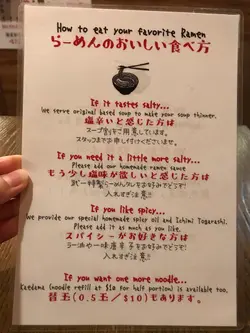 How to eat your favorite Ramen
らーめんのおいしい食べ方
If it tastes salty...
We serve original based soup to make your soup thinner.
塩辛いと感じた方は
スープ割をご用意しています。
スタッフまでお申し付けくださいませ。
If you need it a little more salty...
Please add our homemade ramen sauce
もう少し塩味が欲しいと感じた方は
特製らーめんタレをお好みでどうぞ!
入れすぎ注意!!
If you like spicy...
We provide our special homemade spice oil and Ichimi Togarashi.
Please add it as much as you like.
スパイシーがお好きな方は
ラー油や一味唐辛子をお好みでどうぞ!
入れすぎ注意!!
If you want one more noodle...
Kaedama (noodle refill at $10 for half portion) is available too.
替玉(0.5玉/$10)もあります。